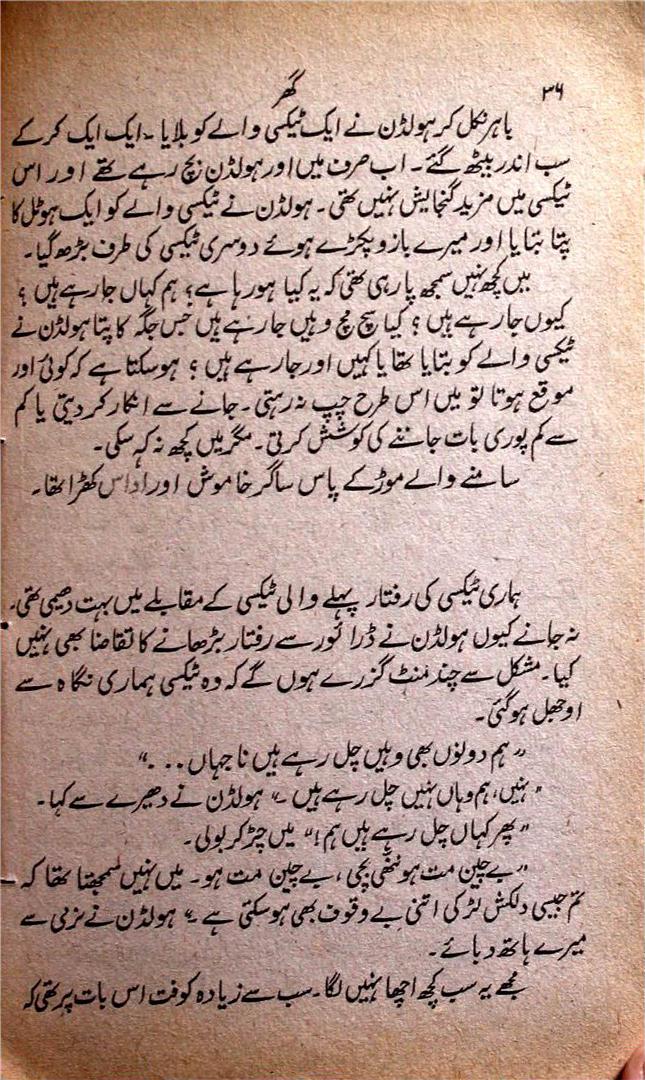 ۳۶
گھر
باہر نکل کر ہولڈن نے ایک ٹیکسی والے کو بلایا ۔ ایک ایک کر کے
سب اندر بیٹھ گئے ۔ اب صرف میں اور ہولڈن بچ رہے تھے اور اس
ٹیکسی میں مزید گنجایش نہیں تھی ۔ ہولڈن نے ٹیکسی والے کو ایک ہوٹل کا
پتا بتایا اور میرے بازو پکڑے ہوئے دوسری ٹیکسی کی طرف بڑھ گیا ۔
میں کچھ نہیں سمجھ پا رہی تھی کہ یہ کیا ہو رہا ہے ؟ ہم کہاں جا رہے ہیں ؟
کیوں جا رہے ہیں ؟ کیا سچ مچ وہیں جا رہے ہیں جس جگہ کا پتا ہولڈن نے
ٹیکسی والے کو بتایا تھا یا کہیں اور جا رہے ہیں ؟ ہو سکتا ہے کہ کوئی اور
موقع ہوتا تو میں اس طرح چپ نہ رہتی ۔ جانے سے انکار کر دیتی یا کم
سے کم پوری بات جاننے کی کوشش کرتی ۔ مگر میں کچھ نہ کہہ سکی ۔
سامنے والے موڑ کے پاس ساگر خاموش اور اداس کھڑا تھا ۔
ہماری ٹیکسی کی رفتار پہلے والی ٹیکسی کے مقابلے میں بہت دھیمی تھی ۔
نہ جانے کیوں ہولڈن نے ڈرائور سے رفتار بڑھانے کا تقاضا بھی نہیں
کیا ۔ مشکل سے چند منٹ گزرے ہوں گے کہ وہ ٹیکسی ہماری نگاہ سے
اوجھل ہو گئی ۔
” ہم دونوں بھی وہیں چل رہے ہیں نا جہاں . . . ۔“
” نہیں ، ہم وہاں نہیں چل رہے ہیں ۔“ ہولڈن نے دھیرے سے کہا ۔
” پھر کہاں چل رہے ہیں ہم ! “ میں چڑ کر بولی ۔
” بے چین مت ہو ننھی بچی ، بے چین مت ہو ۔ میں نہیں سمجھتا تھا کہ
تم جیسی دلکش لڑکی اتنی بے وقوف بھی ہو سکتی ہے ۔“ ہولڈن نے نرمی سے
میرے ہاتھ دبائے ۔
مجھے یہ سب کچھ اچھا نہیں لگا ۔ سب سے زیادہ کوفت اس بات پر تھی کہ